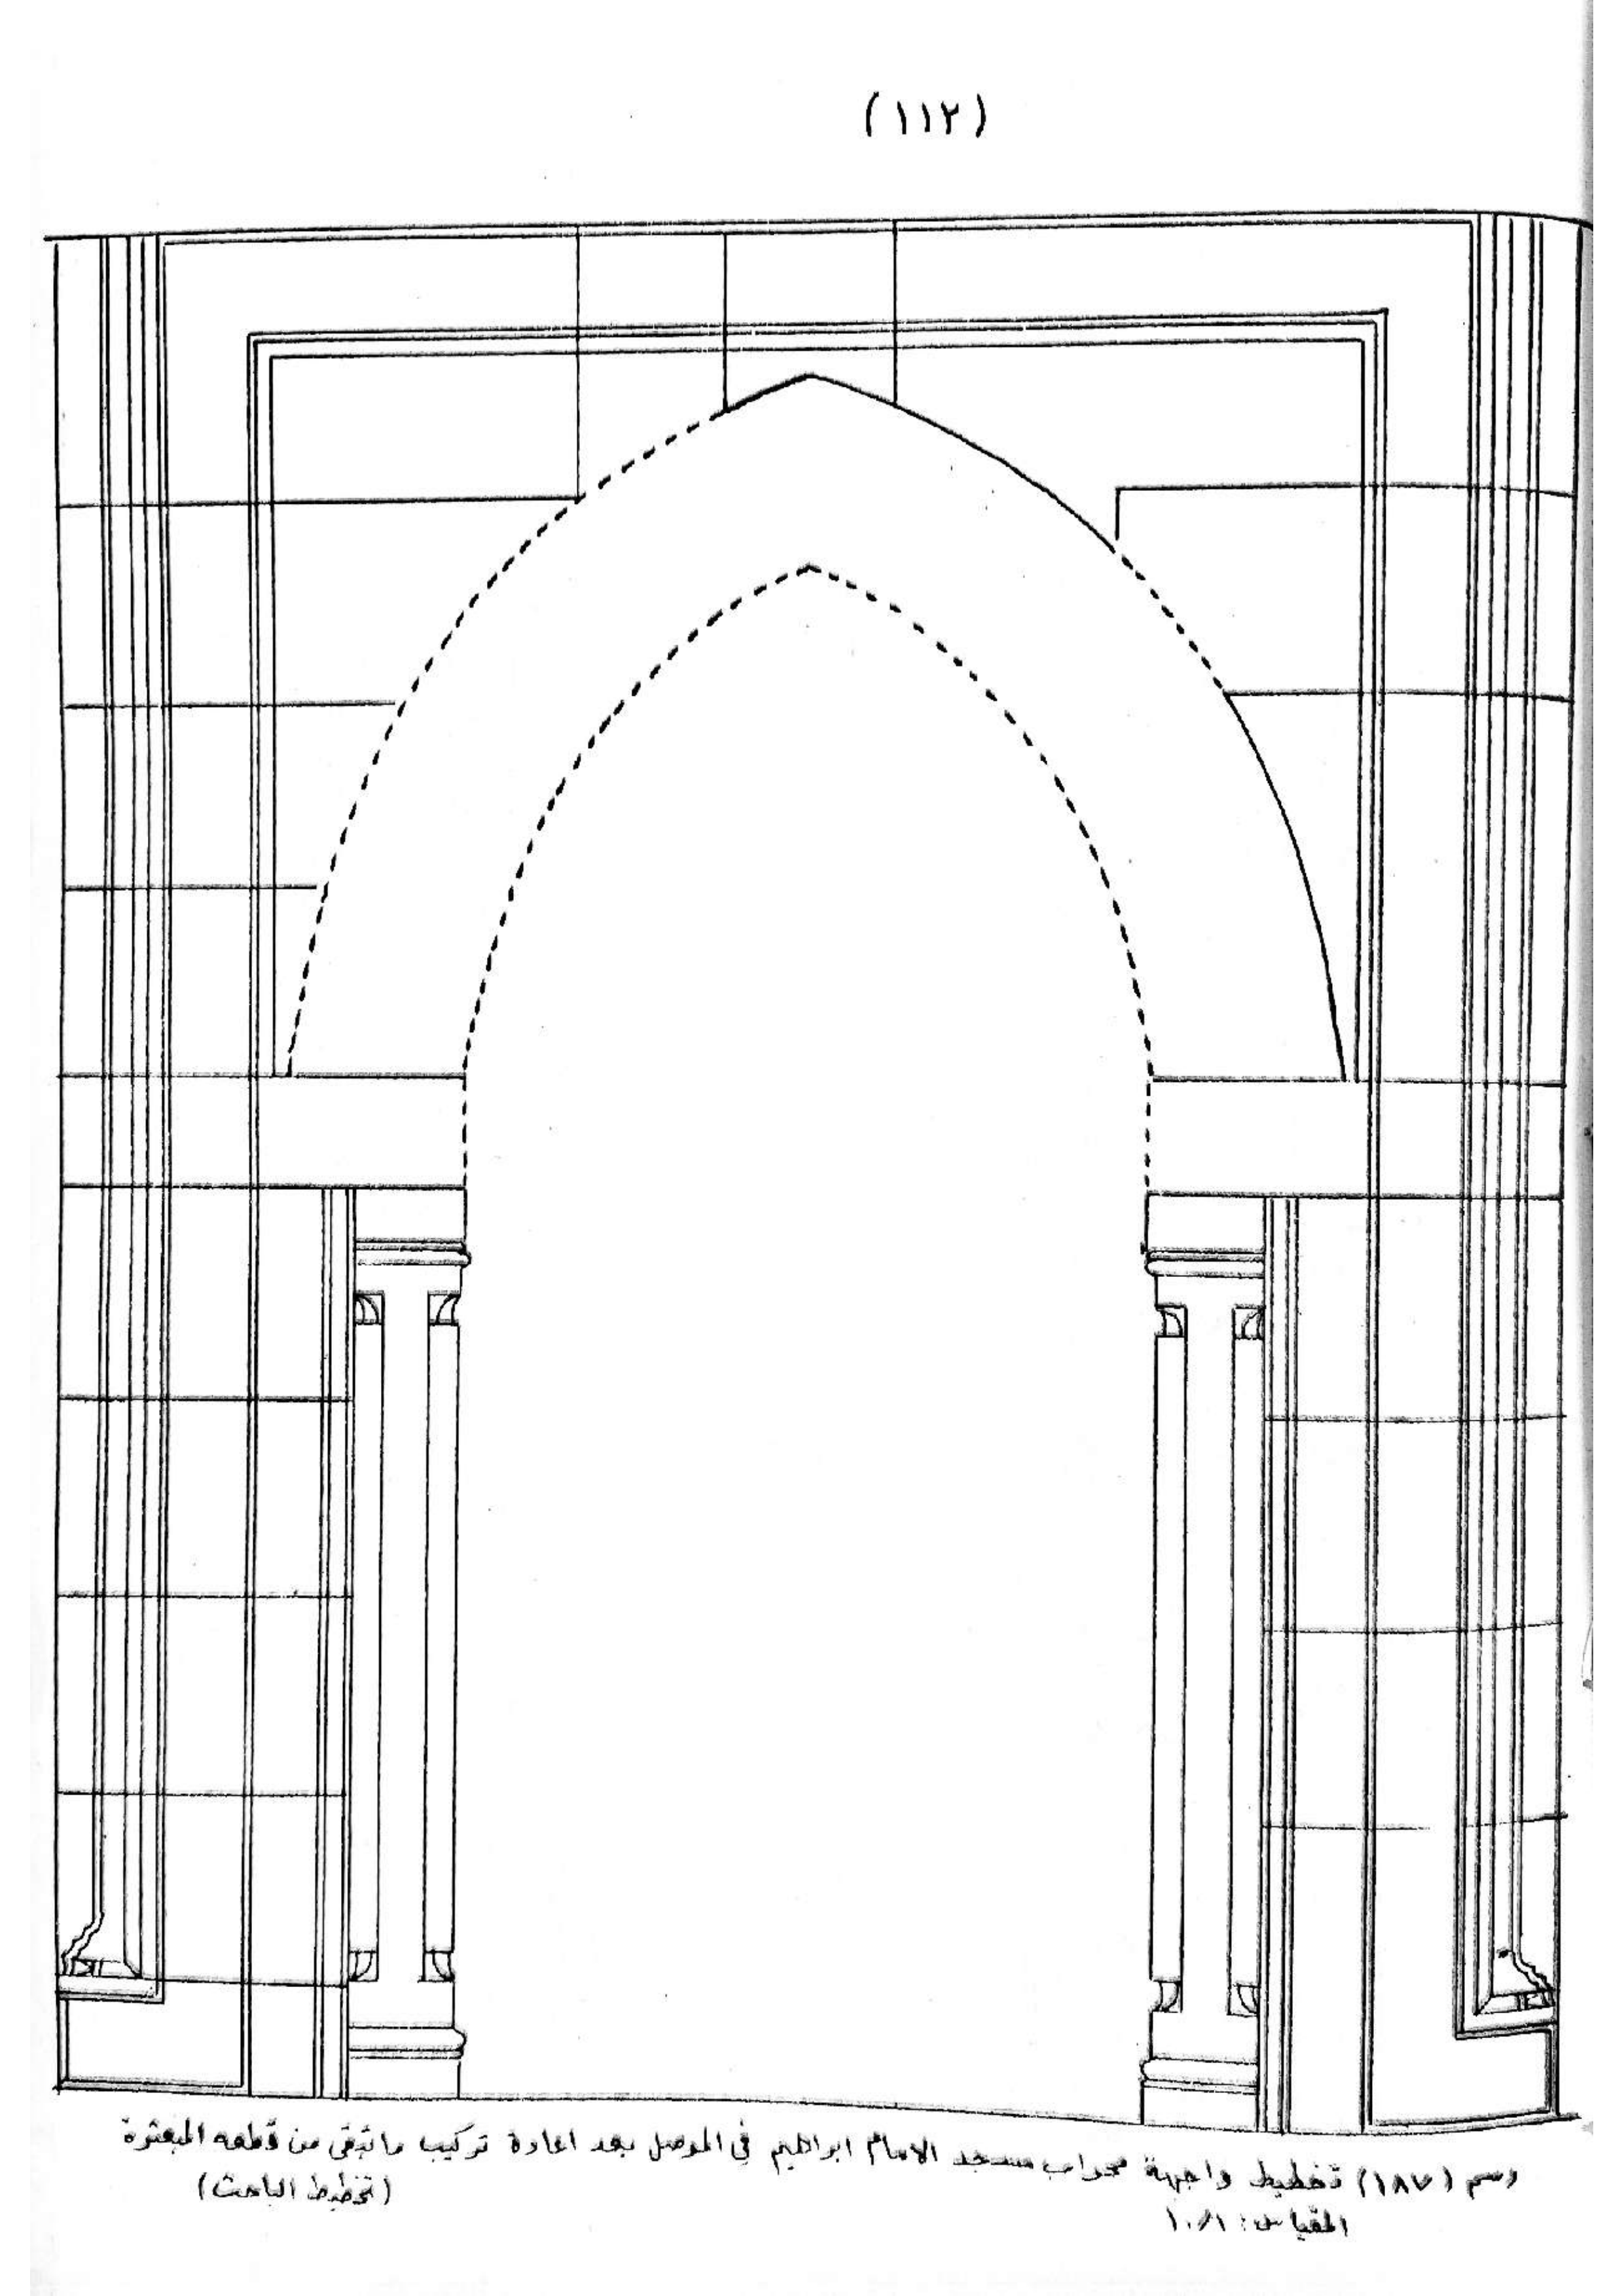 (١١٢)
رسم (١٨٧) تخطيط واجهة محراب مسجد الامام ابراهيم في الموصل بعد اعادة تركيب ماتبقى من قطعه المبعثرة
(تخطيط الباحث)
المقياس: ١٠/١